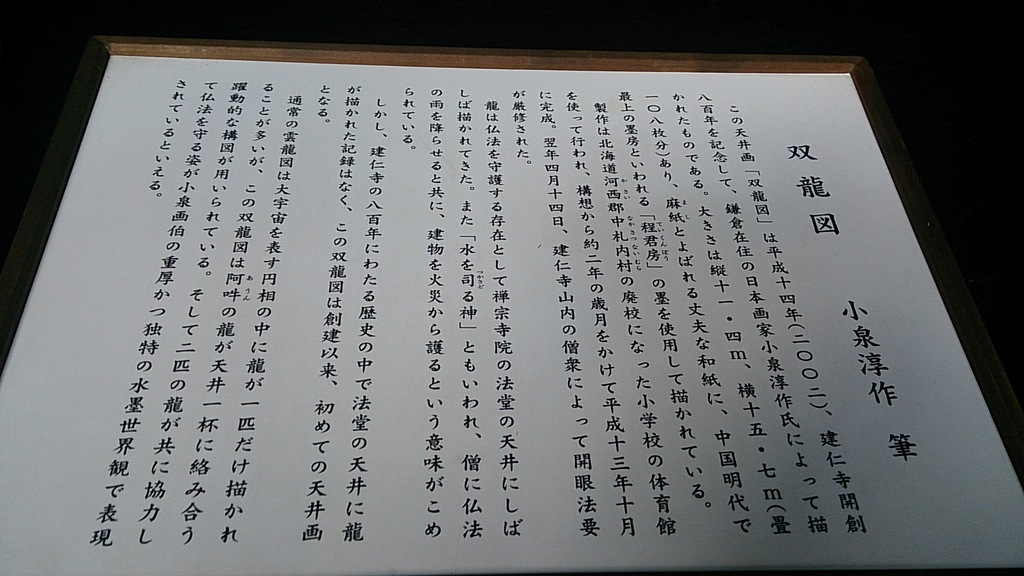 双龍図　小泉淳作　筆
この天井画「双龍図」は平成十四年(二〇〇二)、建仁寺開創
八百年を記念して、鎌倉在住の日本画家小泉淳作氏によって描
かれたものである。大きさは縦十一・四m、横十五・七m(畳
一〇八枚分)あり、麻紙とよばれる丈夫な和紙に、中国明代で
最上の墨房といわれる「程君房」の墨を使用して描かれている。
製作は北海道河西郡中札内村の廃校になった小学校の体育館
を使って行われ、構想から約二年の歳月をかけて平成十三年十月
に完成。翌年四月十四日、建仁寺山内の僧衆によって開眼法要
が厳修された。
龍は仏法を守護する存在として禅宗寺院の法堂の天井にしば
しば描かれてきた。また「水を司る神」ともいわれ、僧に仏法
の雨を降らせると共に、建物を火災から護るという意味がこめ
られている。
しかし、建仁寺の八百年にわたる歴史の中で法堂の天井に龍
が描かれた記録はなく、この双龍図は創建以来、初めての天井画
となる。
通常の雲龍図は大宇宙を表す円相の中に龍が一匹だけ描かれ
ることが多いが、この双龍図は阿吽の龍が天井一杯に絡み合う
躍動的な構図が用いられている。そして二匹の龍が共に協力し
て仏法を守る姿が小泉画伯の重厚かつ独特の水墨世界観で表現
されているといえる。